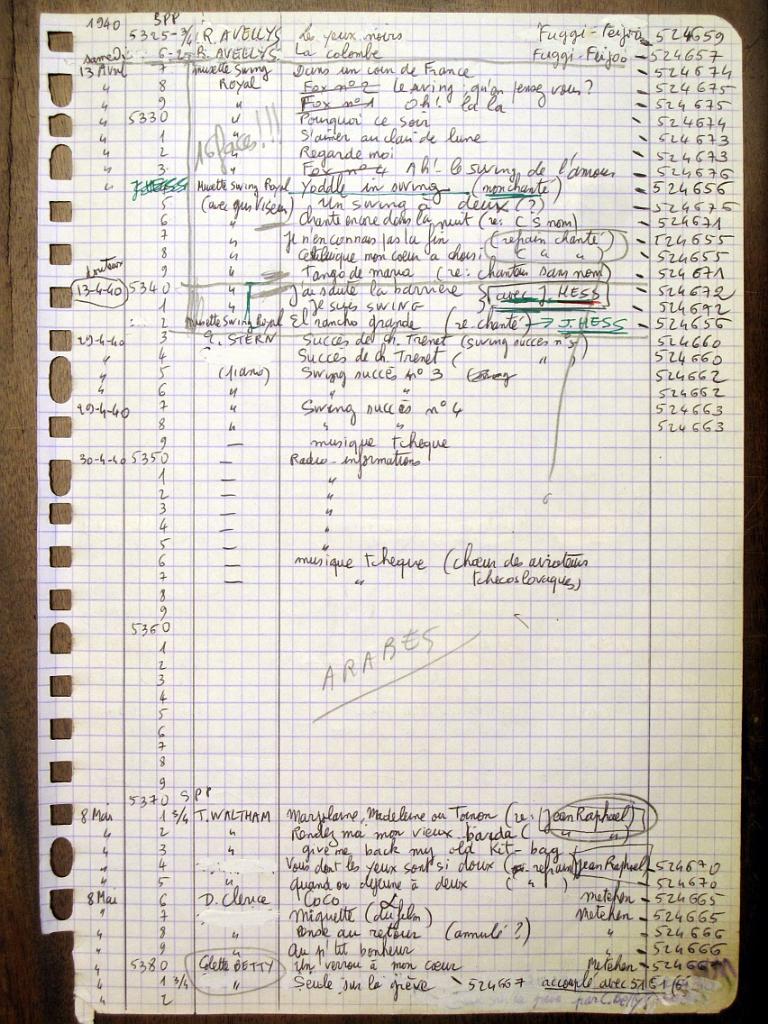 1940 SPP
5325-3/4 R. AVELLYS Les yeux noirs Fuggi-Feijoó 524659
samedi 6-2 R. AVELLYS La colombe Fuggi-Feijoó 524657
13 Avril 7 musette Swing Dans un coin de France 524674
" 8 Royal Fox n°2 Le swing, qu'en pensez vous? 524675
" 9 " Fox n°1 Oh! la la 524675
" 5330 " Pourquoi ce soir 524674
" 1 " S'aimer au clair de lune 524673
" 2 " Regarde moi 524673
" 3 " Fox n°4 Ah! le swing de l'amour 524676
16 faces!!!
" J. HESS Musette Swing Royal Yoddle in swing (non chanté) 524656
5 (avec gus Viseur) Un swing à deux (?) 524676
6 " Chante encore dans la nuit (re: C S nom) 524671
7 " Je n'en connais pas la fin (refrain chanté) 524655
8 " C'est lui que mon coeur a choisi ( " " ) 524655
douteux 9 " Tango de maria (re: chanteur sans nom) 524671
13-4-40 5340 " J'ai sauté la barrière avec J. HESS 524672
1 " Je suis SWING 524672
2 musette Swing Royal El rancho grande (re-chanté) → J. HESS 524656
29-4-40 3 G. STERN Succès de Ch. Trenet (swing succès n°5) 524660
" 4 " Succès de Ch. Trenet ( " ) 524660
" 5 (piano) Swing succès n°3 524662
" 6 " " " 524662
29-4-40 7 " Swing succès n°4 524663
8 " " " 524663
9 — musique tcheque
30-4-40 5350 — Radio-informations
1 — "
2 — "
3 — "
4 — "
5 — "
6 — musique tcheque (choeur des aviateurs
7 — " tchecoslovaques)
8
9
5360
1
2
ARABES
3
4
5
6
7
8
9
5370 SPP
8 Mai 1 3/4 T. WALTHAM Marjolaine, Madeleine ou Toinon (re: Jean Raphael)
" 2 " Rendez moi mon vieux barda ( " " )
" 3 " give me back my old Kit-bag
" 4 Vous dont les yeux sont si doux (refrain Jean Raphael) 524670
" 5 " quand on déjeune à deux ( " ) 524670
8 Mai 6 D. Clerice Coco Metehen 524665
" 7 Miquette (du film) Metehen 524665
" 8 " Onde au retour (annulé?) " 524666
" 9 " Au p'tit bonheur " 524666
" 5380 Colette BETTY Un verrou à mon coeur Metehen 524667
" 1 3/4 " Seule sur la grève 524667 accouplé avec 51
" 2